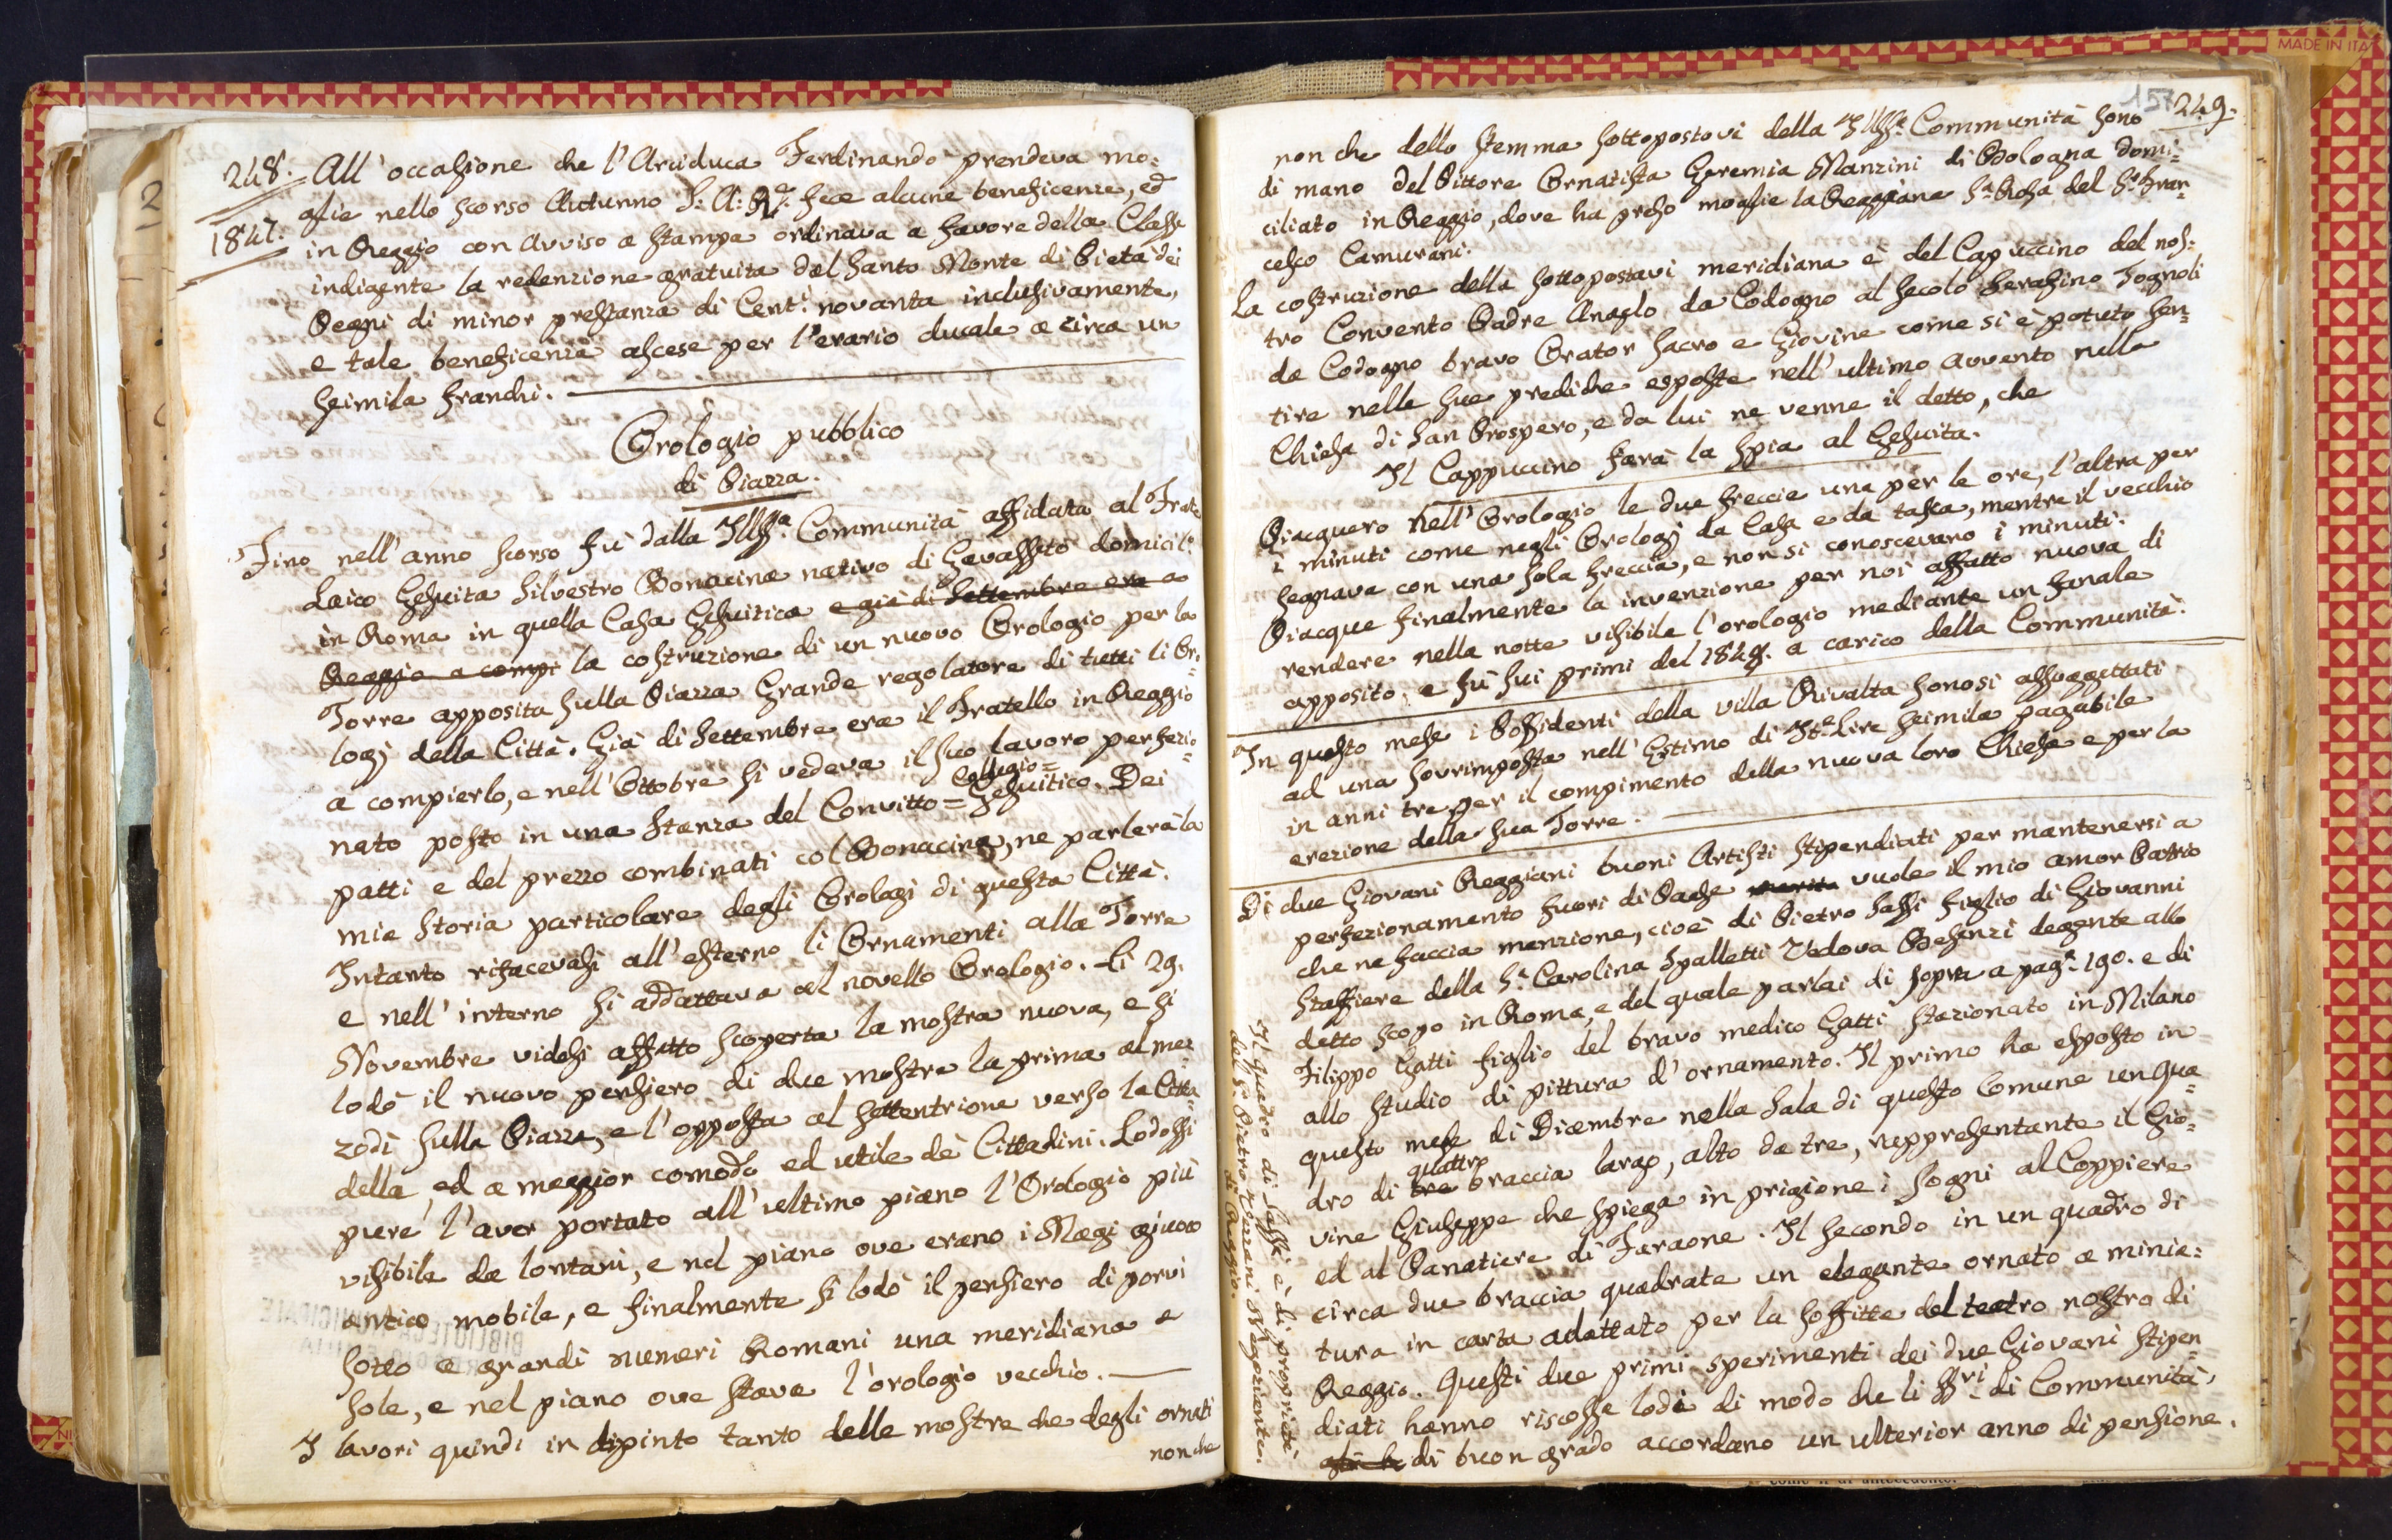 MADE IN ITA
248.
1847.
All' occasione che l'Arciduca Ferdinando prendeva mo=
glie nello scorso Autunno S: A: R: fece alcune beneficenze, ed
in Reggio con Avviso a stampa ordinava a favore della Classe
indigente la redenzione gratuita dal Santo Monte di Pieta dei
Pegni di minor prestanza di Cent.i novanta inclusivamente,
e tale beneficenza ascese per l'erario ducale a circa un
seimila franchi.
Orologio pubblico
di Piazza.
Fino nell'anno scorso fù dalla Illss.a Communità affidata al Frate
Laico Gesuita Silvestro Bonacina nativo di domicil.o
in Roma in quella Casa Gesuitica e già di Settembre era a
Reggio a compi la costruzione di un nuovo Orologio per la
Torre apposita sulla Piazza Grande regolatore di tutti li Or=
logj della Città. Già di Settembre era il Fratello in Reggio
a compierlo, e nell'Ottobre si vedeva il suo lavoro perfezio=
nato posto in una stanza del Convitto = Collegio = Gesuitico. Dei
patti e del prezzo combinati col Bonacina, ne parlerà la
mia Storia particolare degli Orologi di questa Città.
Intanto rifacevasi all'esterno li Ornamenti alla Torre
e nell'interno si addattava al novello Orologio. Li 29.
Novembre videsi affatto scoperta la mostra nuova, e si
lodò il nuovo pensiero di due mostre la prima al mez=
zodì sulla Piazza, e l'opposta al settentrione verso la Citta=
della, ed a maggior comodo ed utile de' Cittadini. Lodossi
pure l'aver portato all'ultimo piano l'Orologio più
visibile da lontani, e nel piano ove erano i Magi giuoco
antico mobile, e finalmente si lodò il pensiero di porvi
sotto a grandi numeri Romani una meridiana a
sole, e nel piano ove stava l'orologio vecchio.
I lavori quindi in dipinto tanto delle mostre che degli ornati
non che
157
249.
non che dello stemma sottopostovi della Illss.a Communità sono
di mano del Pittore Ornatista Geremia Manzini di Bologna domi=
ciliato in Reggio, dove ha preso moglie la Reggiana S.a Rosa del S.r Fran=
cesco Camurani.
La costruzione della sottopostavi meridiana è del Capuccino del nos=
tro Convento Padre Angelo da Codogno al secolo Serafino Tognoli
da Codogno bravo Orator Sacro e Giovine come si è potuto sen=
tire nelle sue prediche esposte nell'ultimo avvento nella
Chiesa di San Prospero, e da lui ne venne il detto, che
Il Cappuccino farà la spia al Gesuita.
Piacquero nell'Orologio le due freccie una per le ore, l'altra per
i minuti come negli Orologj da Casa e da tasca, mentre il vecchio
segnava con una sola freccia, e non si conoscevano i minuti.
Piacque finalmente la invenzione per noi affatto nuova di
rendere nella notte visibile l'orologio mediante un fanale
apposito, e fù sui primi del 1848. a carico della Communità.
In questo mese i Possidenti della villa Rivalta sonosi assoggettati
ad una sovrimposta nell'Estimo di It.e Lire seimila pagabile
in anni tre per il compimento della nuova loro Chiesa e per la
erezione della sua Torre.
Di due Giovani Reggiani buoni Artisti stipenditati per mantenersi a
perfezionamento fuori di Paese merita vuole il mio amor Patrio
che ne faccia menzione, cioè di Pietro Sassi figlio di Giovanni
Staffiere della S.a Carolina Spalletti Vedova Besenzi degente allo
detto scopo in Roma, e del quale parlai di sopra a pag.a 190. e di
Filippo Gatti figlio del bravo medico Gatti stazionato in Milano
allo studio di pittura d'ornamento. Il primo ha esposto in
questo mese di Dicembre nella Sala di questo Comune un Qua=
dro di tre quattro braccia largo, alto da tre, rappresentante il Gio=
vine Giuseppe che spiega in prigione i sogni al Coppiere
ed al Panatiere di Faraone. Il secondo in un quadro di
circa due braccia quadrate un elegante ornato a minia=
tura in carta adattato per la soffitte del teatro nostro di
Reggio. Questi due primi sperimenti dei due Giovani stipen=
diati hanno riscosse lodi di modo che li SS.ri di Communità,
di buon grado accordano un ulterior anno di pensione.
Il Quadro di Sassi è di proprietà
del S.r Pietro Negoziante.
di Reggio.